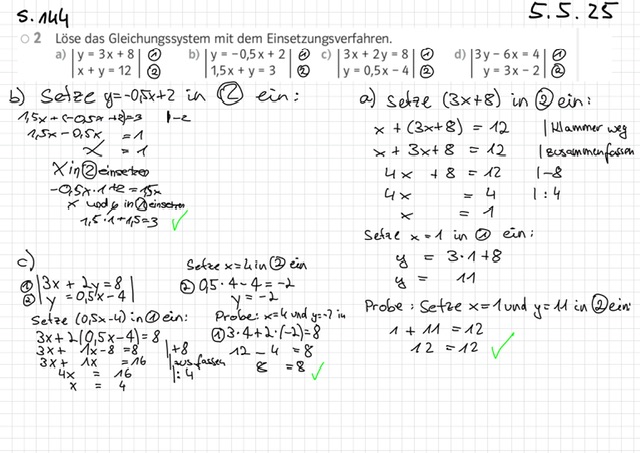 S. 144
5.5.25
2 Löse das Gleichungssystem mit dem Einsetzungsverfahren.
a) | y = 3x + 8 | ① b) | y = −0,5x + 2 | ① c) | 3x + 2y = 8 | ① d) | 3y − 6x = 4 | ①
| x + y = 12 | ② | 1,5x + y = 3 | ② | y = 0,5x − 4 | ② | y = 3x − 2 | ②
b) Setze y=-0,5x+2 in ② ein:
1,5x+(-0,5x+2)=3 |-2
1,5x-0,5x = 1
x = 1
x in ② einsetzen
-0,5x·1+2=1,5x
x und y in ② einsetzen
1,5·1+1,5=3 ✓
a) Setze (3x+8) in ② ein:
x + (3x+8) = 12 | Klammer weg
x + 3x+8 = 12 | zusammenfassen
4x + 8 = 12 | -8
4x = 4 | : 4
x = 1
Setze x=1 in ① ein:
y = 3·1+8
y = 11
Probe: Setze x=1 und y=11 in ② ein:
1 + 11 = 12
12 = 12 ✓
c)
① |3x + 2y = 8|
② |y = 0,5x-4|
Setze (0,5x-4) in ① ein:
3x+2(0,5x-4) = 8
3x+ 1x-8 = 8 | +8
3x+ 1x = 16 | zusfassen
4x = 16 | : 4
x = 4
Setze x=4 in ② ein
② 0,5·4-4 = -2
y = -2
Probe: x=4 und y=-2 in
① 3·4+2·(-2)=8
12 - 4 = 8
8 = 8 ✓